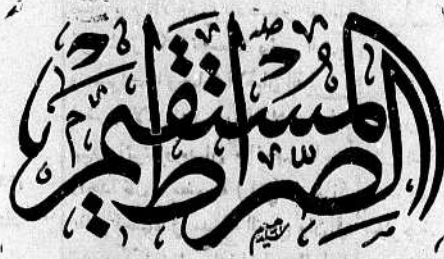 الصِّرَاطَ الْمُسْتَقِيْمَ